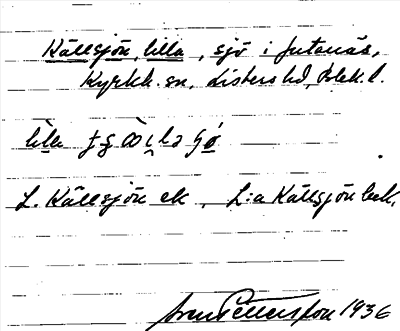 Källsjön, lilla, sjö i Jutanäs,
Kyrkh. sn, Listers hd, Blek. l.
lilla
L. Källsjön ek, L:a Källsjön bek.
Sven Pettersson 1936